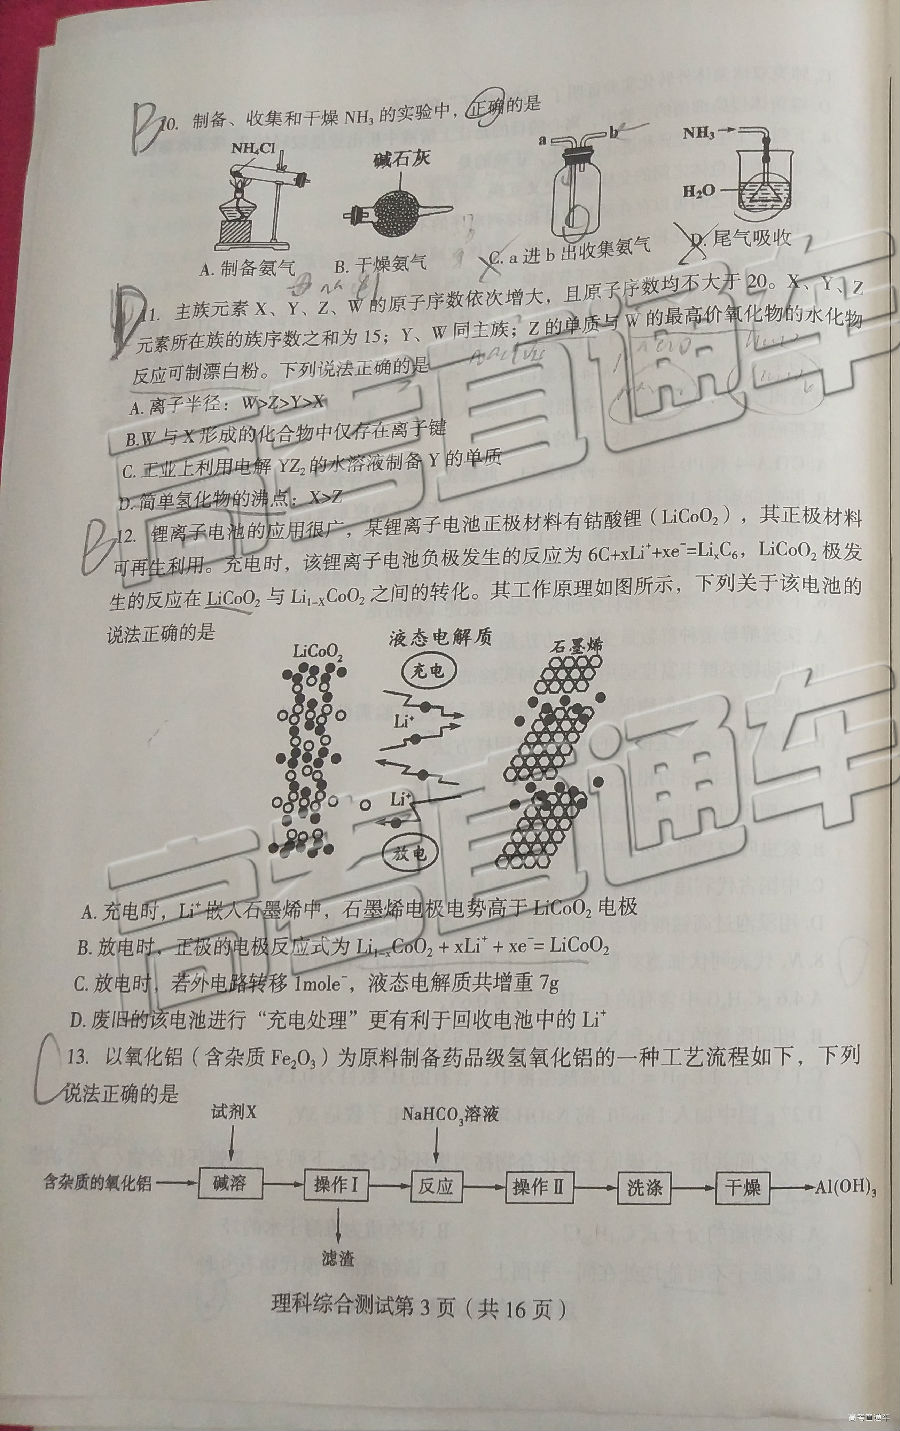 B
10. 制备、收集和干燥 NH₃ 的实验中，正确的是
NH₄Cl
碱石灰
a
b
NH₃
H₂O
A. 制备氨气
B. 干燥氨气
C. a 进 b 出收集氨气
D. 尾气吸收
D
11. 主族元素 X、Y、Z、W 的原子序数依次增大，且原子序数均不大于 20。X、Y、Z
元素所在族的族序数之和为 15；Y、W 同主族；Z 的单质与 W 的最高价氧化物的水化物
反应可制漂白粉。下列说法正确的是
A. 离子半径：W>Z>Y>X
B.W 与 X 形成的化合物中仅存在离子键
C. 工业上利用电解 YZ₂ 的水溶液制备 Y 的单质
D. 简单氢化物的沸点：X>Z
B
12. 锂离子电池的应用很广，某锂离子电池正极材料有钴酸锂（LiCoO₂），其正极材料
可再生利用。充电时，该锂离子电池负极发生的反应为 6C+xLi⁺+xe⁻=LiₓC₆，LiCoO₂ 极发
生的反应在 LiCoO₂ 与 Li₁₋ₓCoO₂ 之间的转化。其工作原理如图所示，下列关于该电池的
说法正确的是
LiCoO₂
液态电解质
石墨烯
充电
Li⁺
Li⁺
放电
A. 充电时，Li⁺ 嵌入石墨烯中，石墨烯电极电势高于 LiCoO₂ 电极
B. 放电时，正极的电极反应式为 Li₁₋ₓCoO₂ + xLi⁺ + xe⁻= LiCoO₂
C. 放电时，若外电路转移 1mole⁻，液态电解质共增重 7g
D. 废旧的该电池进行“充电处理”更有利于回收电池中的 Li⁺
C
13. 以氧化铝（含杂质 Fe₂O₃）为原料制备药品级氢氧化铝的一种工艺流程如下，下列
说法正确的是
试剂X
NaHCO₃溶液
含杂质的氧化铝
碱溶
操作Ⅰ
反应
操作Ⅱ
洗涤
干燥
Al(OH)₃
滤渣
理科综合测试第 3 页（共 16 页）
高考直通车
高考直通车
高考直通车